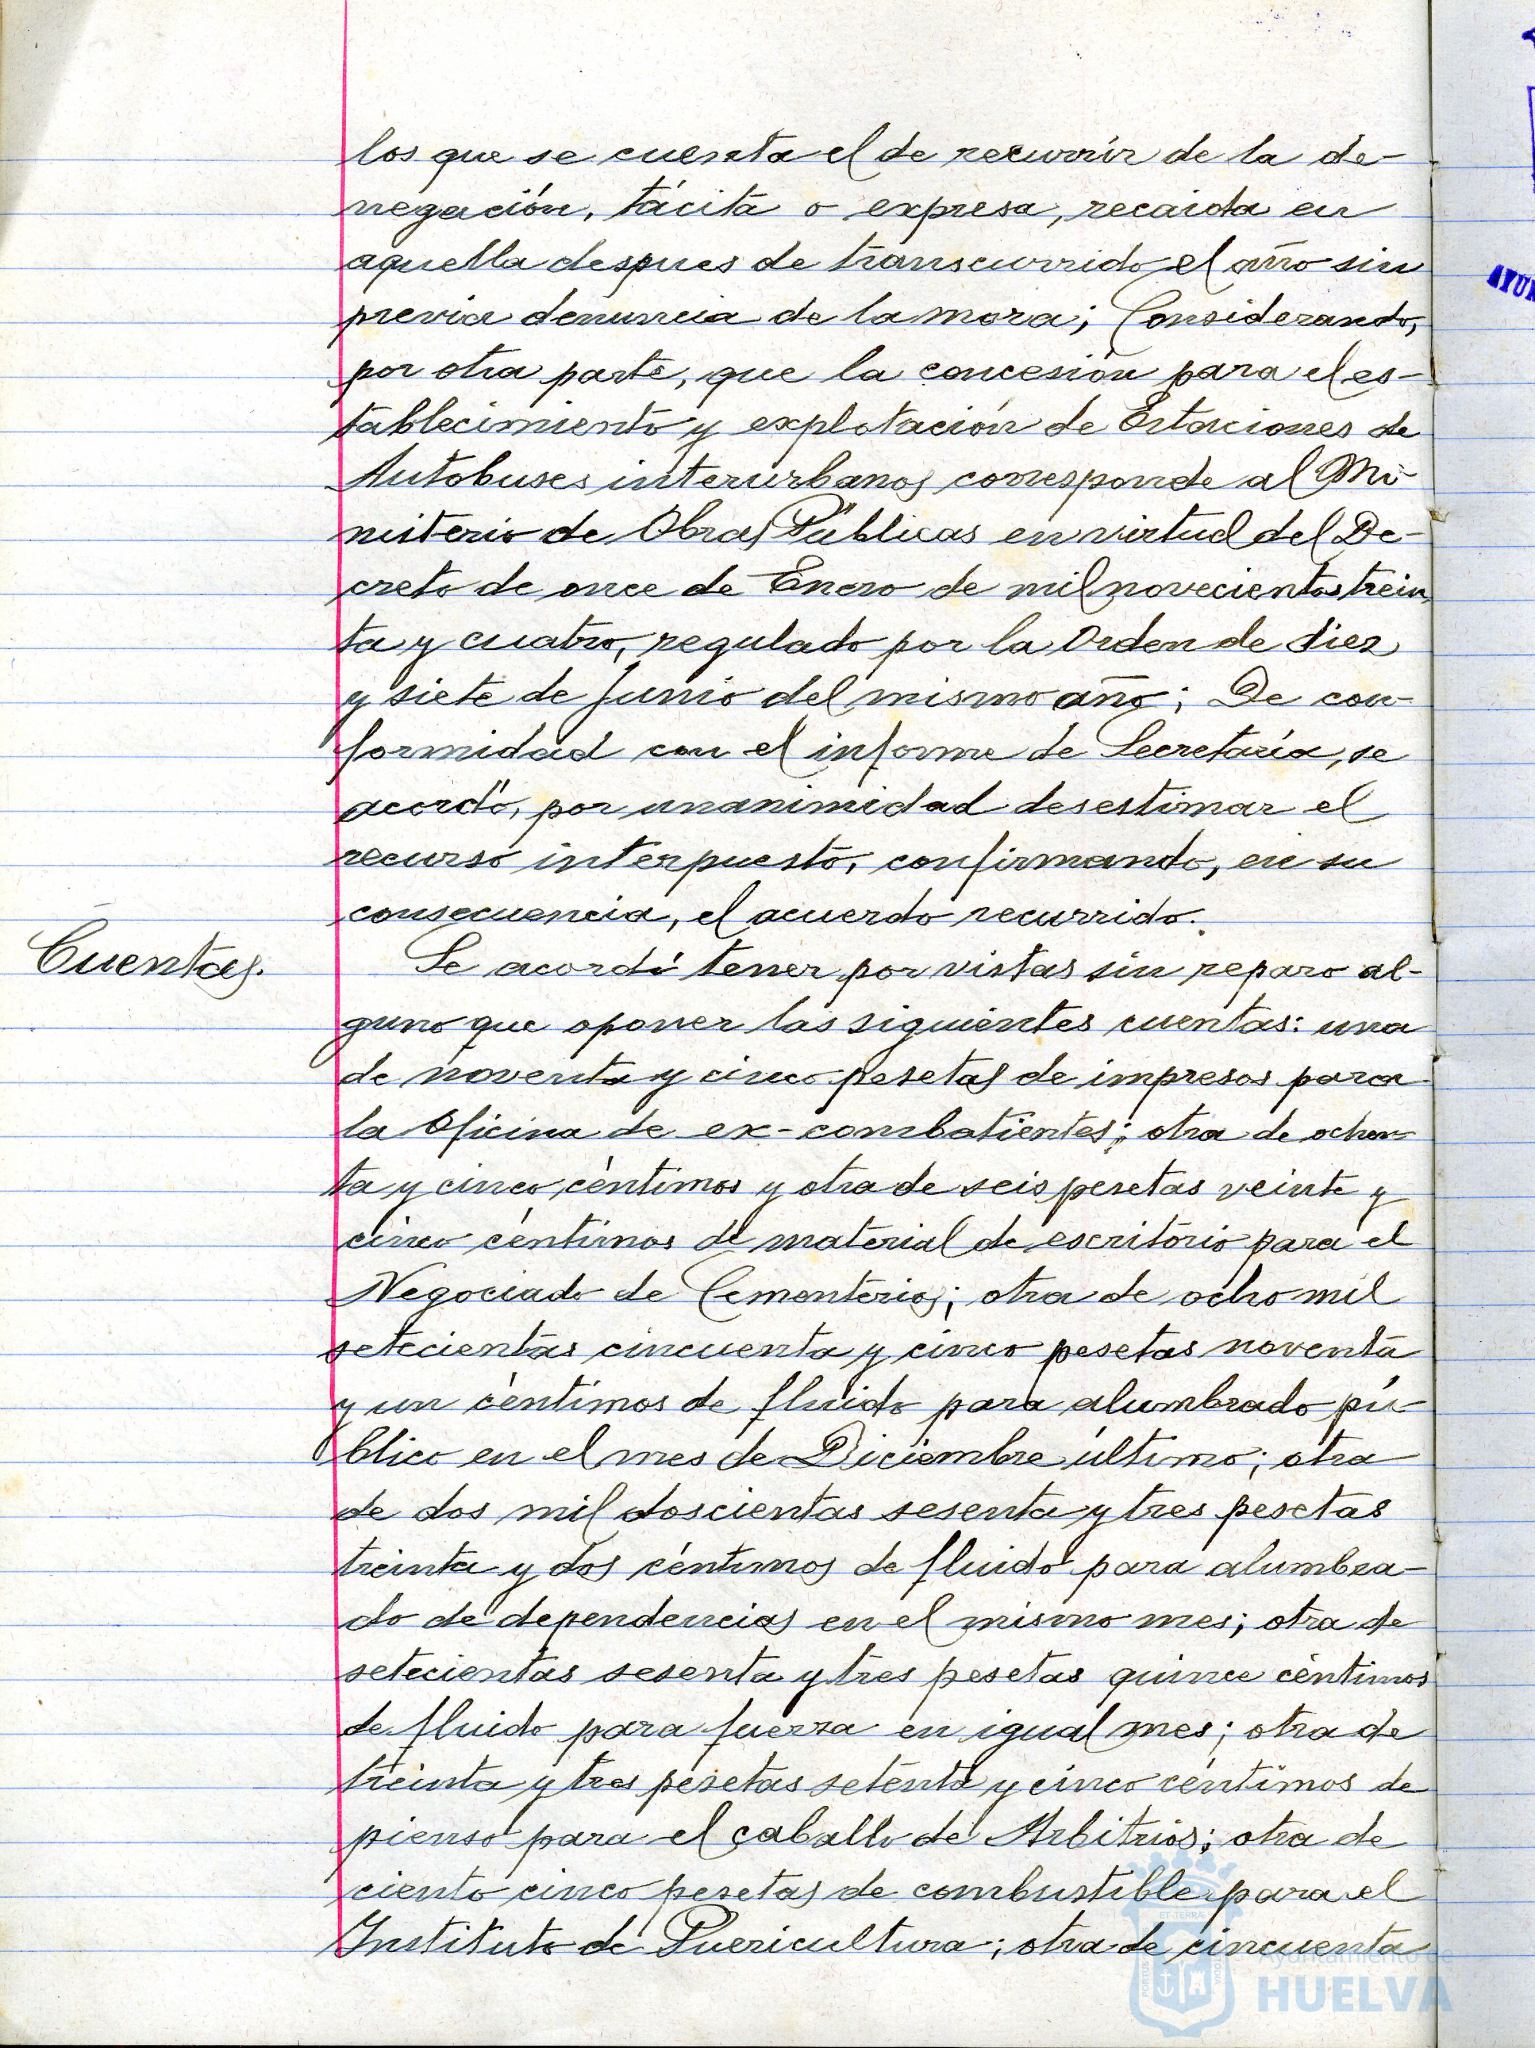 los que se cuenta el de recurrir de la de-
negación, tácita o expresa, recaida en
aquella despues de transcurrido el año sin
previa denuncia de la mora; Considerando,
por otra parte, que la concesión para el es-
tablecimiento y explotación de Estaciones de
Autobuses interurbanos corresponde al Mi-
nisterio de Obras Públicas en virtud del De-
creto de once de Enero de mil novecientos trein
ta y cuatro, regulado por la Orden de diez
y siete de junio del mismo año; De con-
formidad con el informe de Secretaría, se
acordó, por unanimidad desestimar el
recurso interpuesto, confirmando, en su
consecuencia, el acuerdo recurrido.
Cuentas.
Se acordó tener por vistas sin reparo al-
guno que oponer las siguientes cuentas: una
de noventa y cinco pesetas de impresos para
la Oficina de ex-combatientes; otra de ochen
ta y cinco céntimos y otra de seis pesetas veinte y
cinco céntimos de material de escritorio para el
Negociado de Cementerios; otra de ocho mil
setecientas cincuenta y cinco pesetas noventa
y un céntimos de fluido para alumbrado pú-
blico en el mes de Diciembre último; otra
de dos mil doscientas sesenta y tres pesetas
treinta y dos céntimos de fluido para alumbra-
do de dependencias en el mismo mes; otra de
setecientas sesenta y tres pesetas quince céntimos
de fluido para fuerza en igual mes; otra de
treinta y tres pesetas setenta y cinco céntimos de
pienso para el caballo de Arbitrios; otra de
ciento cinco pesetas de combustible para el
Instituto de Puericultura; otra de cincuenta
AYUN
Ayuntamiento de
HUELVA